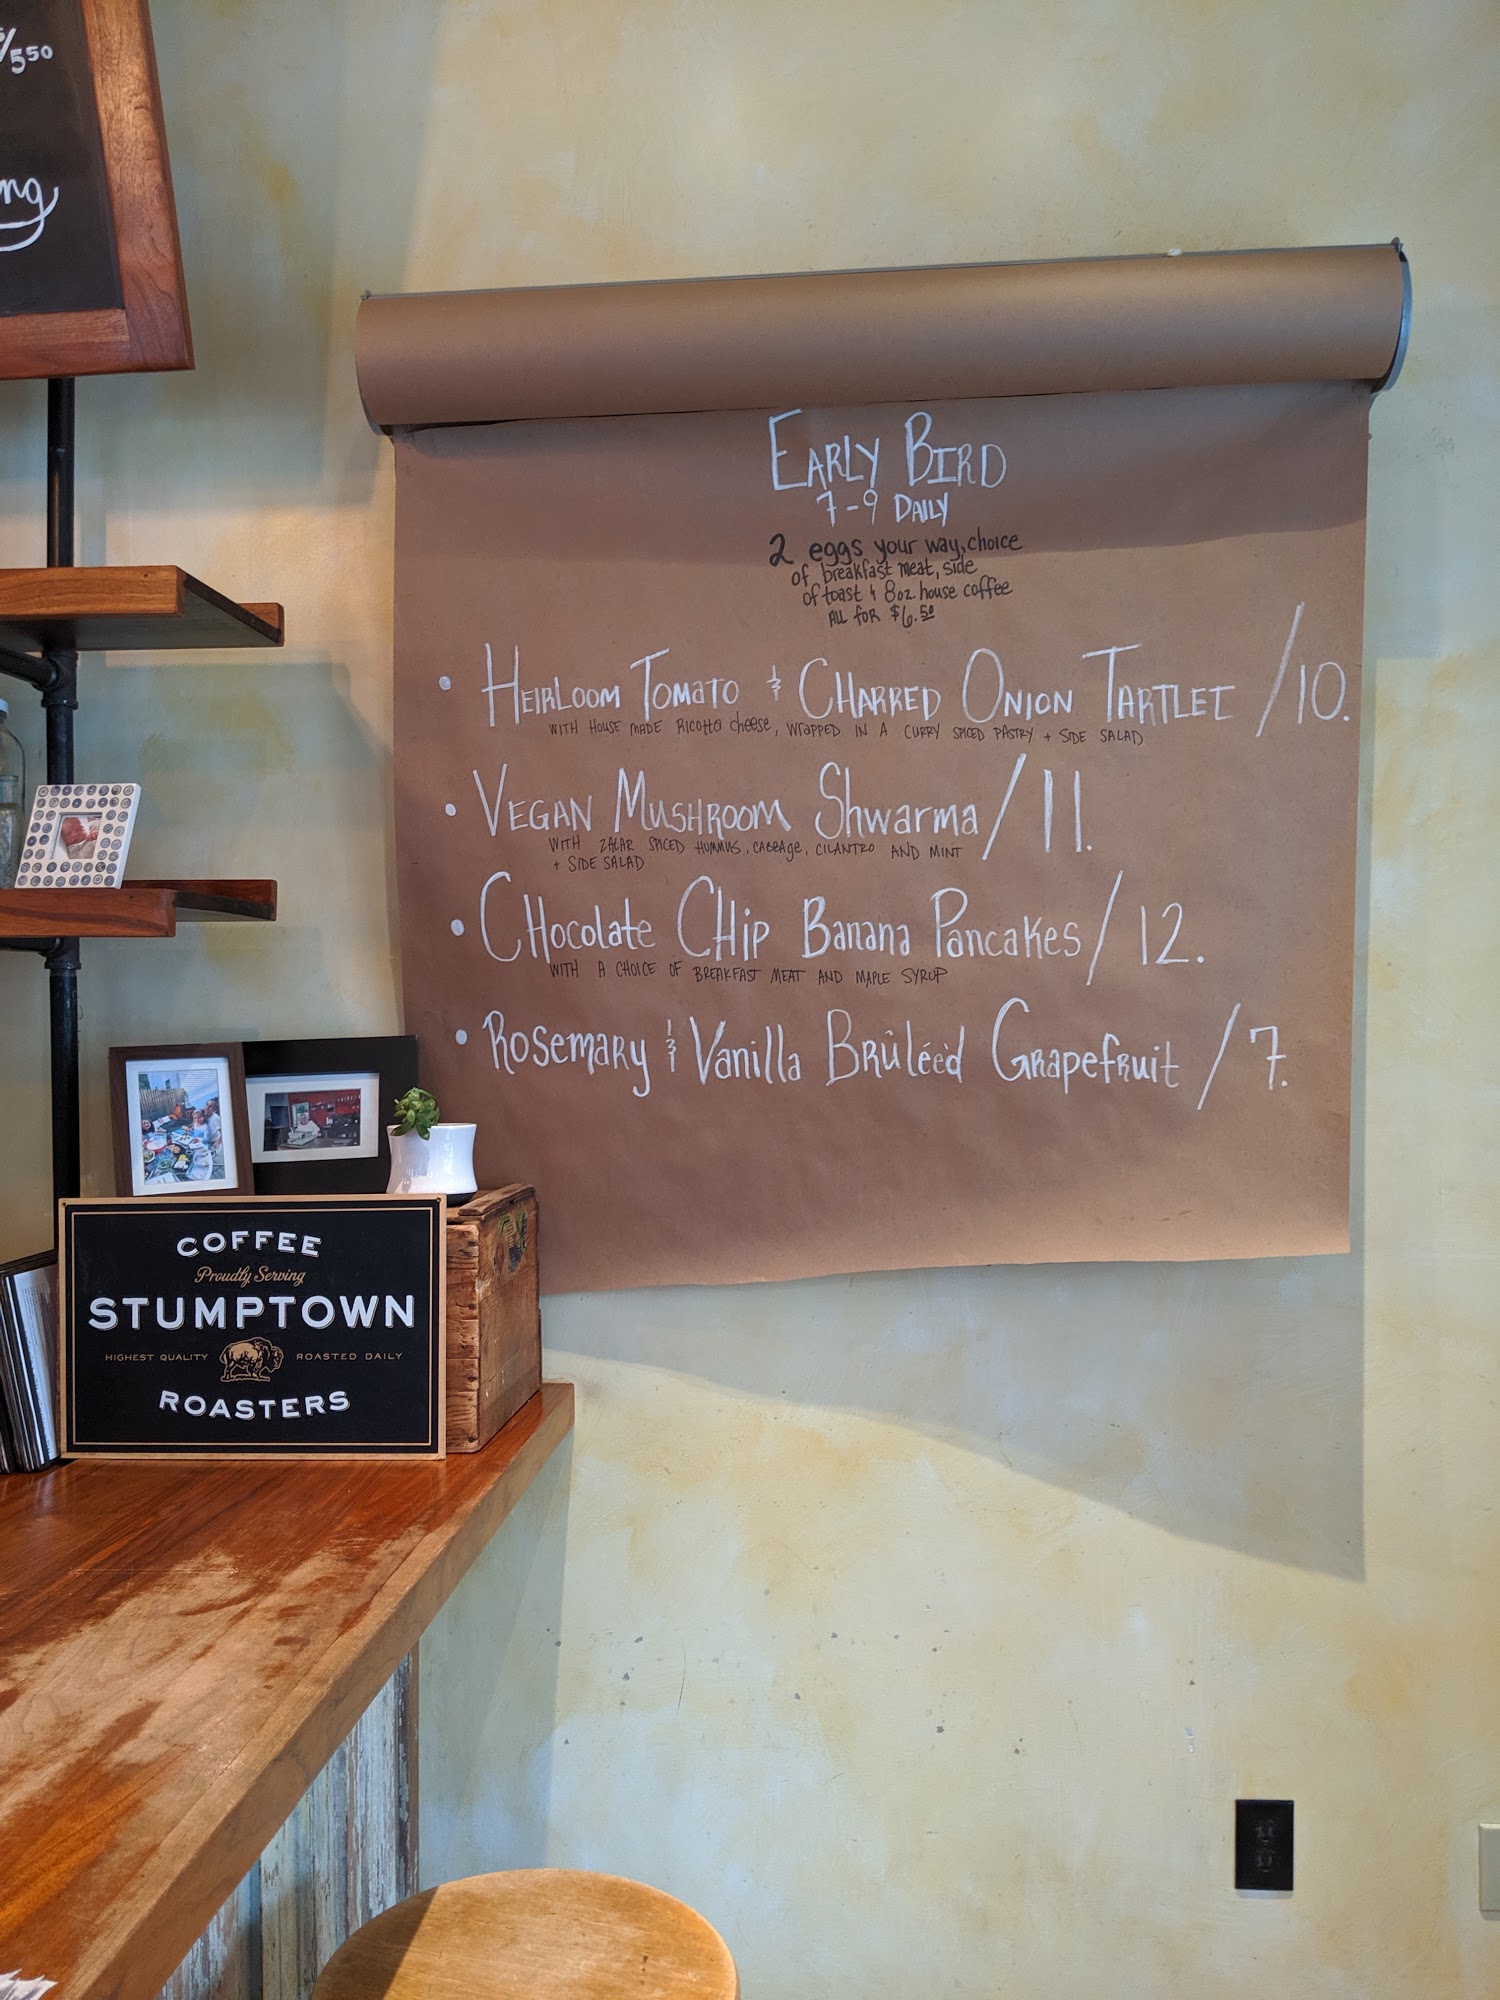 5/550
ng
EARLY BIRD
7-9 DAILY
2 eggs your way, choice
of breakfast meat, side
of toast & 8oz. house coffee
ALL for $6.50
• HEIRLOOM TOMATO & CHARRED ONION TARTLET /10.
WITH HOUSE MADE RICOTTO cheese, WRAPPED IN A CURRY SPICED PASTRY + SIDE SALAD
• VEGAN MUSHROOM Shwarma / 11.
WITH ZATAR SPICED HUMMUS, CABBAge, CILANTRO AND MINT
+ SIDE SALAD
• CHocolate CHip Banana Pancakes / 12.
WITH A CHOICE OF BREAKFAST MEAT AND MAPLE SYRUP
• Rosemary & Vanilla Brûléeèd Grapefruit / 7.
COFFEE
Proudly Serving
STUMPTOWN
HIGHEST QUALITY ROASTED DAILY
ROASTERS